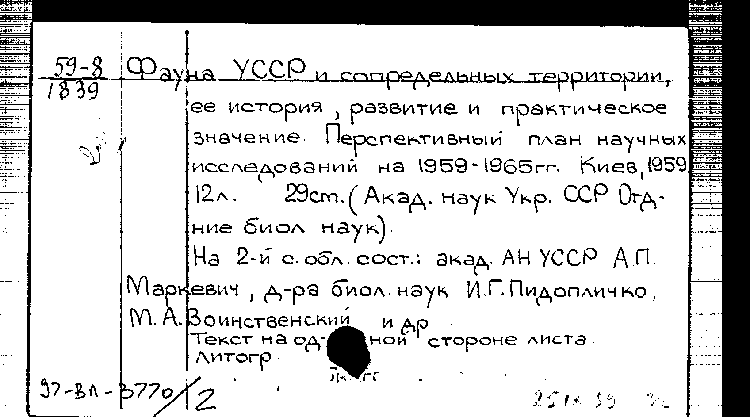 59-8 Фауна УССР и сопредельных территории,
1839
ее история, развитие и практическое
значение. Перспективный план научных
исследований на 1959-1965гг. Киев, 1959
12л. 29cm. (Акад. наук Укр. ССР Отд-
ние биол наук).
На 2-й с. обл. сост.: акад. АН УССР А.П.
Маркевич, д-ра биол. наук И.Г. Пидопличко,
М.А. Воинственский и др
Текст на од- ной стороне листа.
литогр.
97-ВЛ-3770/2